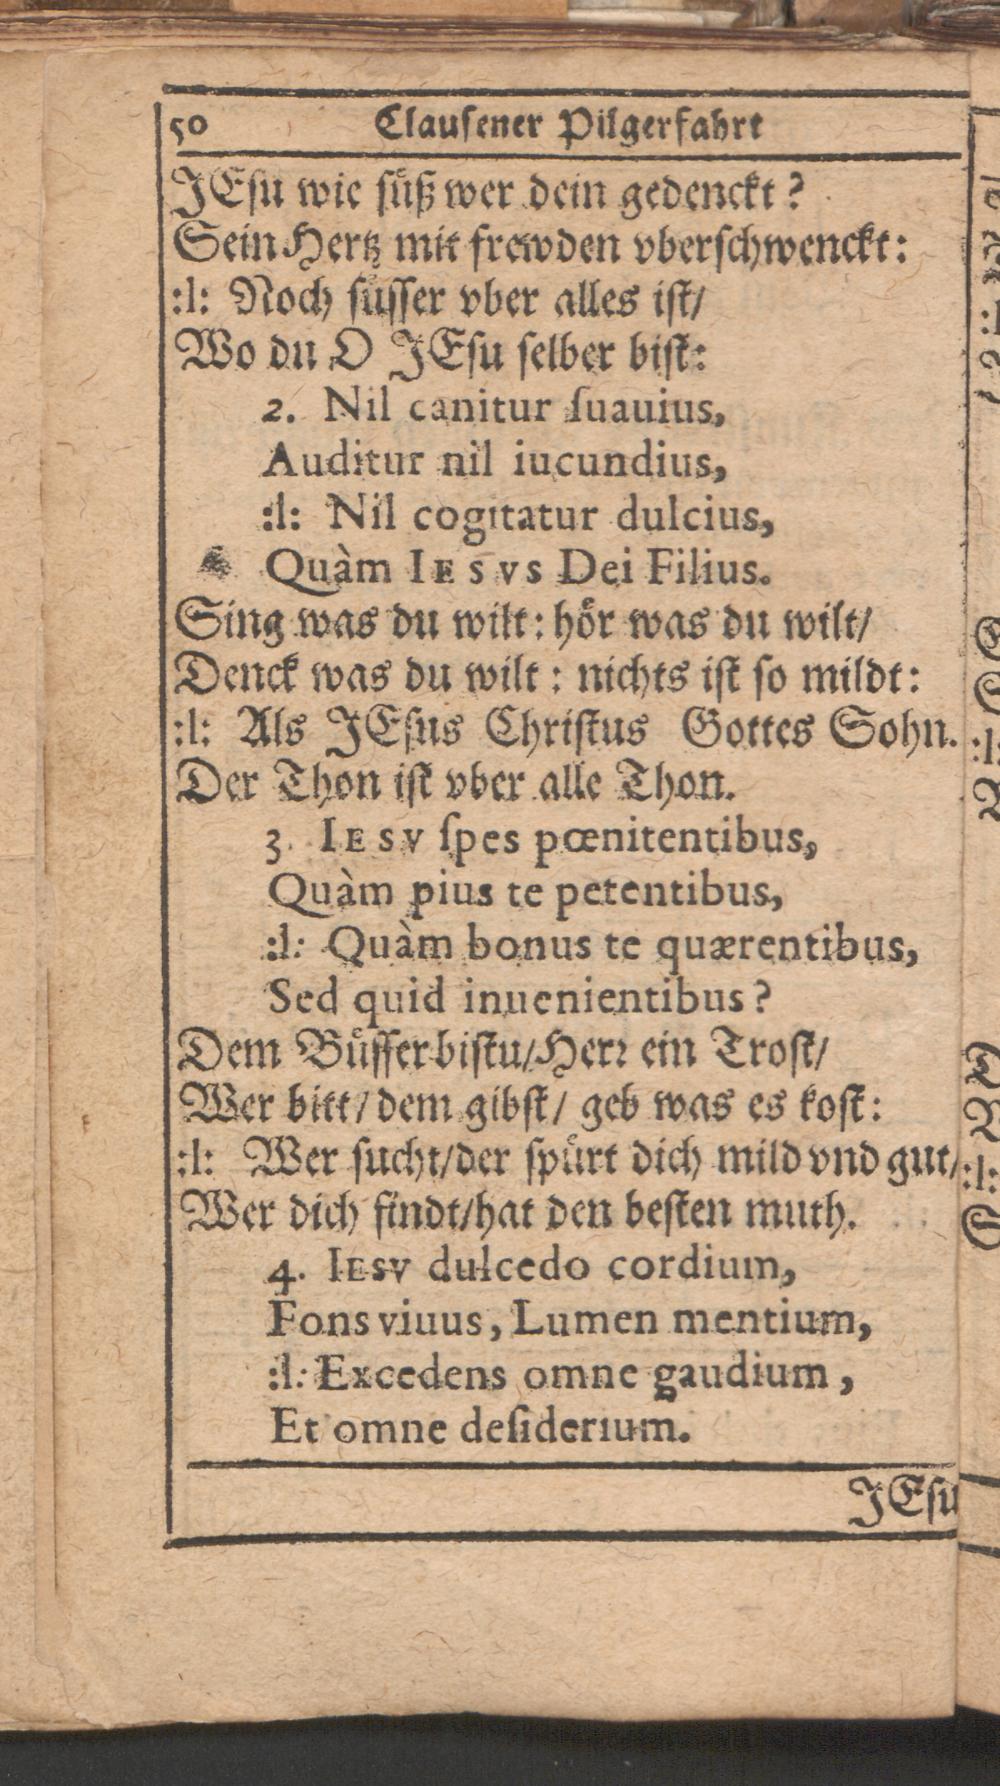 50 Clauſener Pilgerfahrt
JEſu wie ſuͤß wer dein gedenckt?
Sein Hertz mit frewden vberſchwenckt:
:l: Noch ſuͤſſer vber alles iſt/
Wo du O JEſu ſelber biſt:
2. Nil canitur ſuauius,
Auditur nil iucundius,
:l: Nil cogitatur dulcius,
Quàm IESVS Dei Filius.
Sing was du wilt: hoͤr was du wilt/
Denck was du wilt: nichts iſt ſo mildt:
:l: Als JEſus Chriſtus Gottes Sohn.
Der Thon iſt vber alle Thon.
3. IESV ſpes pœnitentibus,
Quàm pius te petentibus,
:l: Quàm bonus te quærentibus,
Sed quid inuenientibus?
Dem Buͤſſer biſtu/Herꝛ ein Troſt/
Wer bitt/dem gibſt/ geb was es koſt:
:l: Wer ſucht/der ſpuͤrt dich mild vnd gut/
Wer dich findt/hat den beſten muth.
4. IESV dulcedo cordium,
Fons viuus, Lumen mentium,
:l: Excedens omne gaudium,
Et omne deſiderium.
JEſu